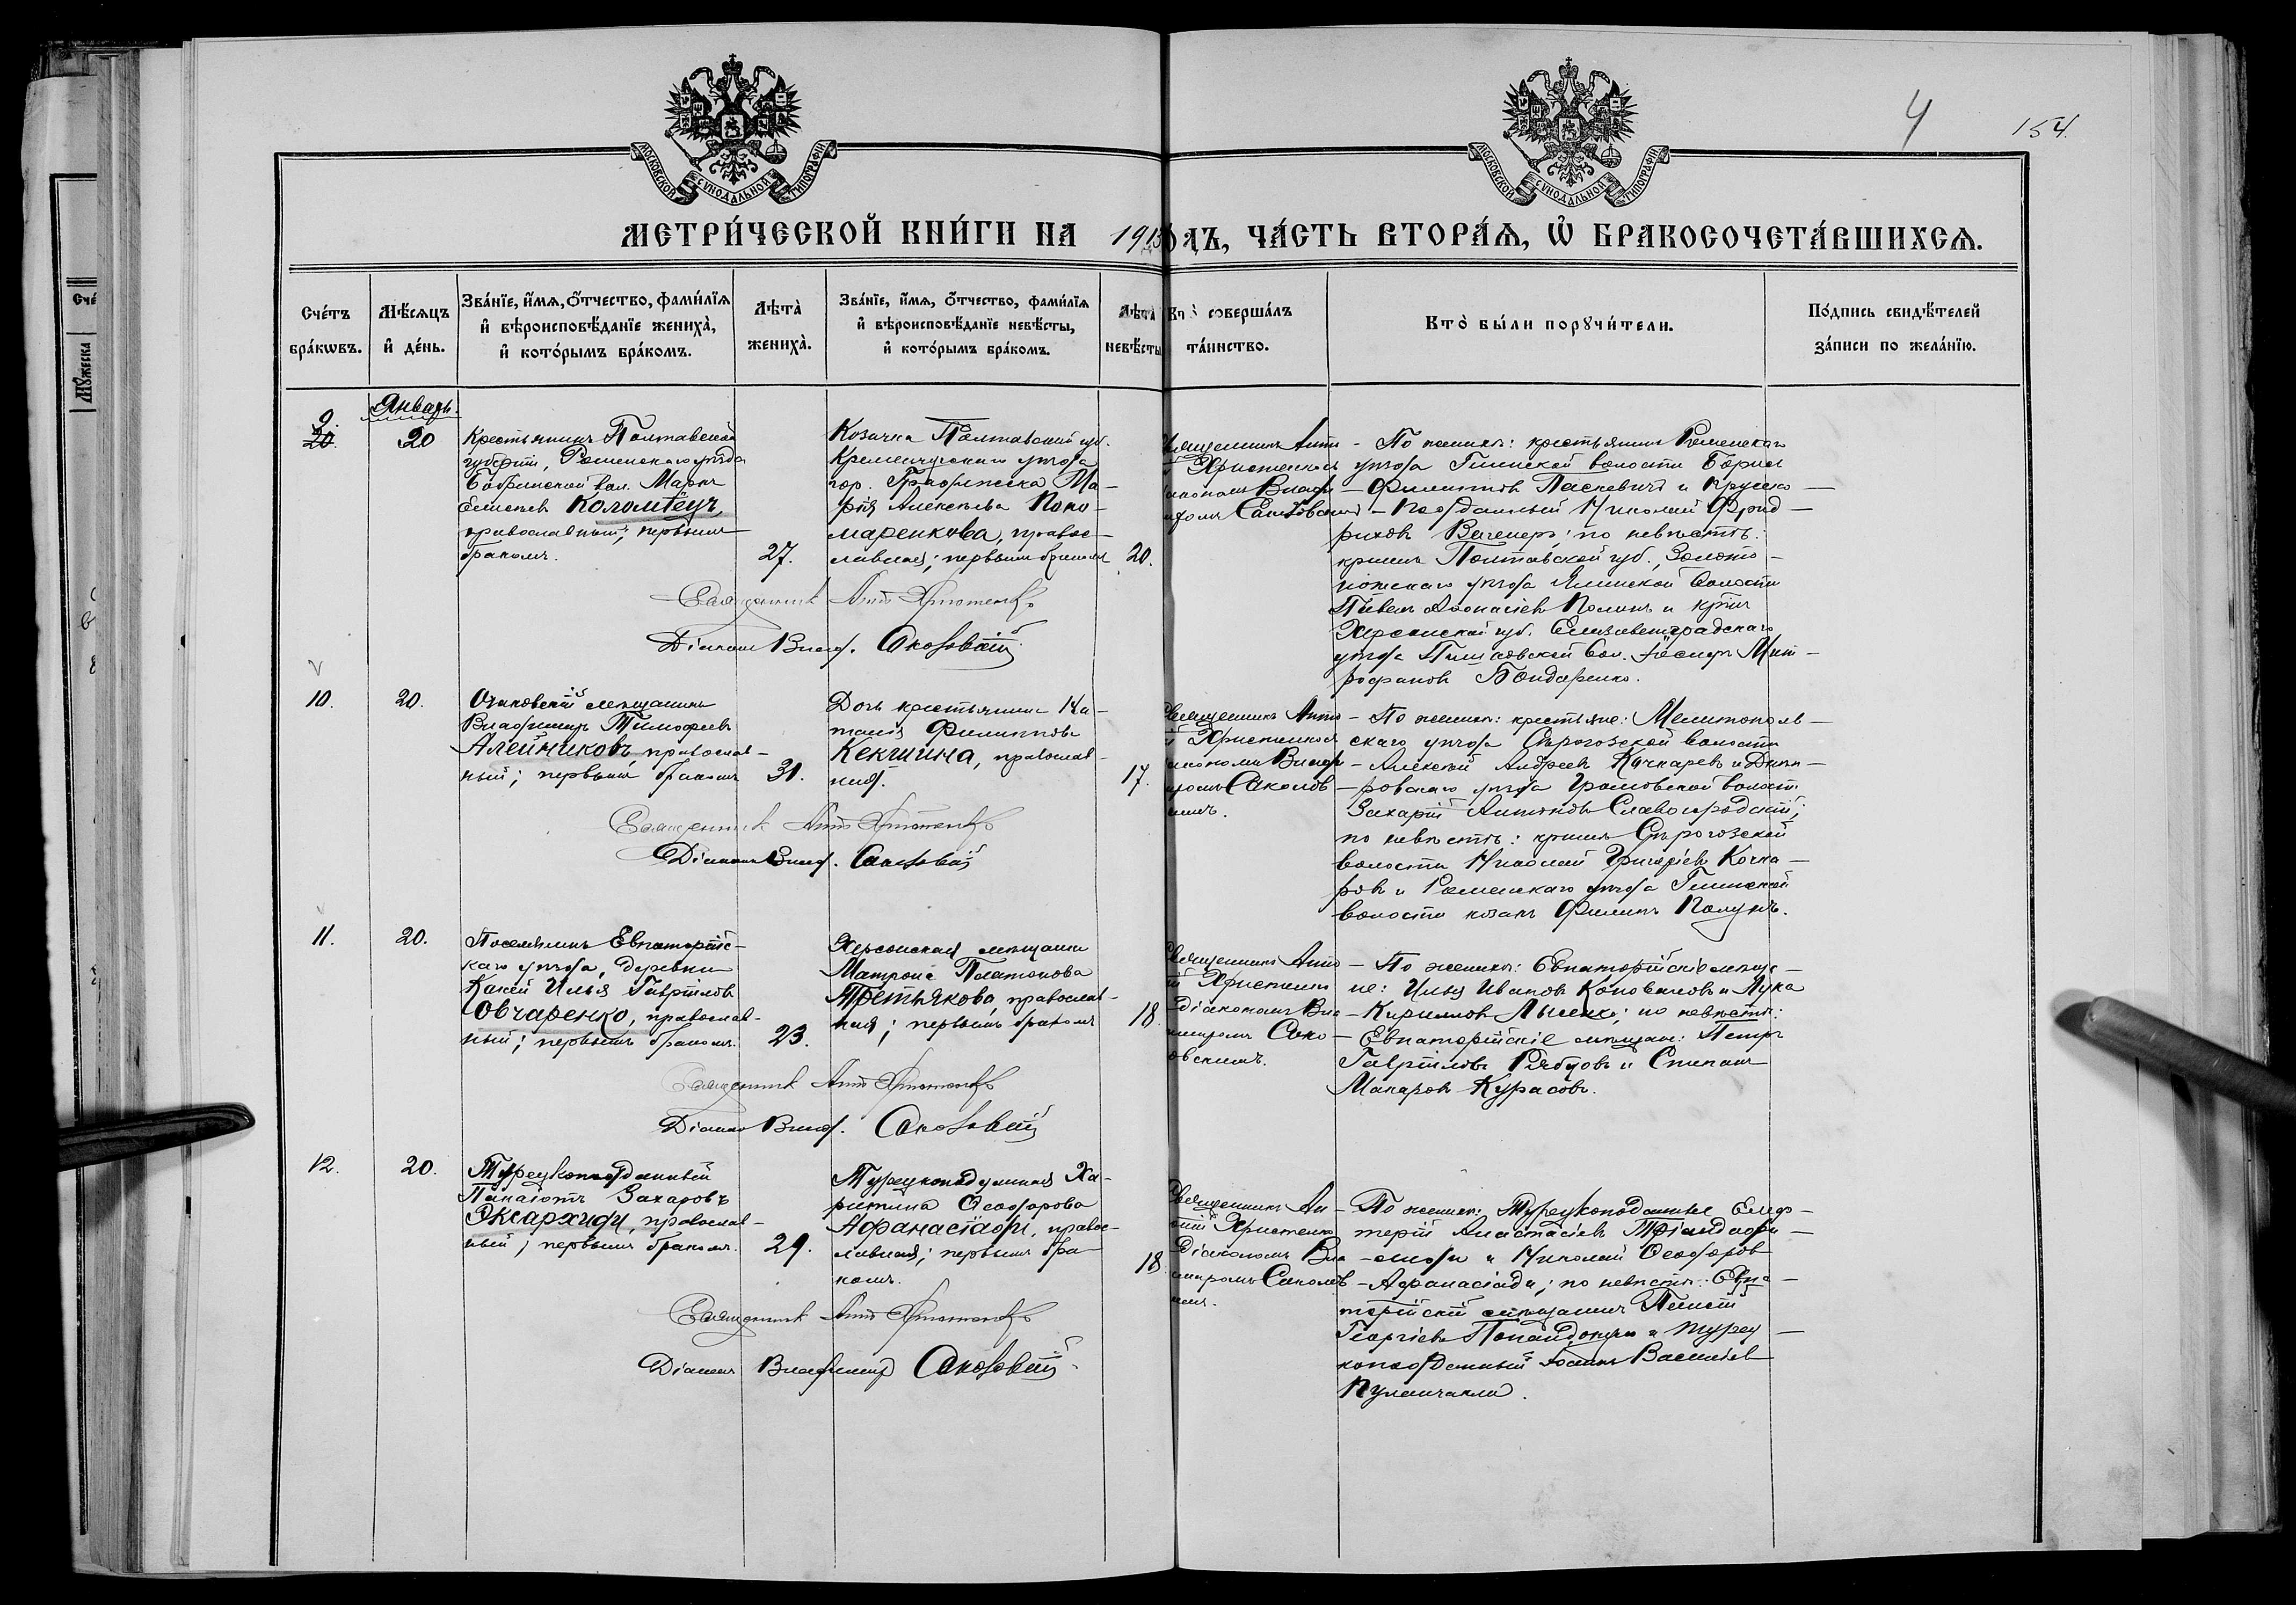 4
154.
МОСКОВСКОЙ СѴНОДАЛЬНОЙ ТИПОГРАФІИ
МОСКОВСКОЙ СѴНОДАЛЬНОЙ ТИПОГРАФІИ
МЕТРИ́ЧЕСКОЙ КНИ́ГИ НА 1913 ОДЪ, ЧА́СТЬ ВТОРА́Ѧ, Ѡ҆ БРАКОСОЧЕТА́ВШИХСѦ.
Сче́тъ бра́кѡвъ.
Мѣ́сѧцъ и҆ де́нь.
Зва́нїе, и҆́мѧ, ѻ҆́тчество, фами́лїѧ и҆ вѣроисповѣ́данїе жениха̀, и҆ кото́рымъ бра́комъ.
Лѣта̀ жениха̀.
Зва́нїе, и҆́мѧ, ѻ҆́тчество, фами́лїѧ и҆ вѣроисповѣ́данїе невѣ́сты, и҆ кото́рымъ бра́комъ.
Лѣта̀ невѣ́сты
Кто̀ соверша́лъ та́инство.
Кто̀ бы́ли порꙋчи́тели.
По́дпись свидѣ́телей за́писи по жела́нїю.
Январь.
9.
20.
20
Крестьянинъ Полтавской
губерніи, Роменскаго уѣзда
вол. Маркъ
Коломіецъ,
православный; первымъ
бракомъ.
27.
Козачка Полтавской губ.
Кременчугскаго уѣзда
гор. Градижска Ма-
рія Алексѣева Поно-
маренкова, правос-
лавная; первымъ бракомъ
20.
Священникъ Анто-
й Христенко
діакономъ Влади-
По женихѣ: крестьянинъ Роменскаго
уѣзда Глинской волости Борисъ
Филипповъ Паскевичъ и Прусско-
Подданный Николай Фрид-
риховъ Вагенеръ; по невѣстѣ:
крнинъ Полтавской губ., Золото-
ношскаго уѣзда волости
Павелъ Аѳанасіевъ и крнинъ
Херсонской губ. Елизаветградскаго
уѣзда вол. Мит-
рофановъ Бондаренко.
Священникъ Ант. Христенко
Діаконъ Влад. Соколовскій
10.
20.
Очаковскій мѣщанинъ
Владимиръ Тимоѳеевъ
Алейниковъ, православ-
ный; первымъ бракомъ
31.
Дочь крестьянина На-
талія Филиппова
Кекшина, православ-
ная.
17.
Священникъ Анто-
й Христенко
діакономъ Влади-
міромъ Соколов-
скимъ.
По женихѣ: крестьяне: Мелитополь-
скаго уѣзда Сѣрогозской волости
Алексѣй Андреевъ Кочкаревъ и Днѣп-
ровскаго уѣзда Громовской волости
Захарій Антоновъ Славогородскій;
по невѣстѣ: крнинъ Сѣрогозской
волости Николай Григорьевъ Кочка-
ровъ и Роменскаго уѣзда Глинской
волости козакъ Филипъ
Священникъ Ант. Христенко
Діаконъ Влад. Соколовскій
11.
20.
Поселянинъ Евпаторійс-
каго уѣзда, деревни
Илья Гавріиловъ
Овчаренко, православ-
ный; первымъ бракомъ.
23.
Херсонская мѣщанка
Матрона Платонова
Третьякова, православ-
ная; первымъ бракомъ
18
Священникъ Анто-
й Христенко
діакономъ Вла-
диміромъ Соко-
ловскимъ.
По женихѣ: Евпаторійскіе мѣща-
не: Илья Ивановъ Коноваловъ и Лука
Кирилловъ Лысенко; по невѣстѣ:
Евпаторійскіе мѣщане: Петръ
Гавріиловъ Рябцовъ и Степанъ
Макаровъ Курасовъ.
Священникъ Ант. Христенко
Діаконъ Влад. Соколовскій
12.
20.
Турецкоподданный
Панаіотъ Захаровъ
Эксархиди, православ-
ный; первымъ бракомъ.
29.
Турецкоподданная Ха-
ритина Ѳеодорова
Афанасіади, правос-
лавная; первымъ бра-
комъ.
18
Священникъ Ан-
тоній Христенко
Діакономъ Вла-
диміромъ Соколов-
скимъ.
По женихѣ: Турецкоподданные Елев-
терій Анастасіевъ Тріандафи-
лиди и Николай Ѳеодоровъ
Афанасіади; по невѣстѣ: Евпа-
торійскій мѣщанинъ
Георгіевъ и Турец-
коподданный Іоаннъ Васильевъ
Священникъ Ант. Христенко
Діаконъ Владимиръ Соколовскій